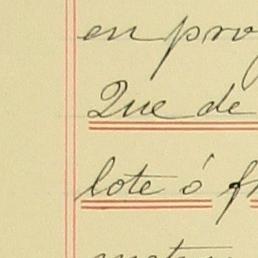 en pro
Que de
lote ó f